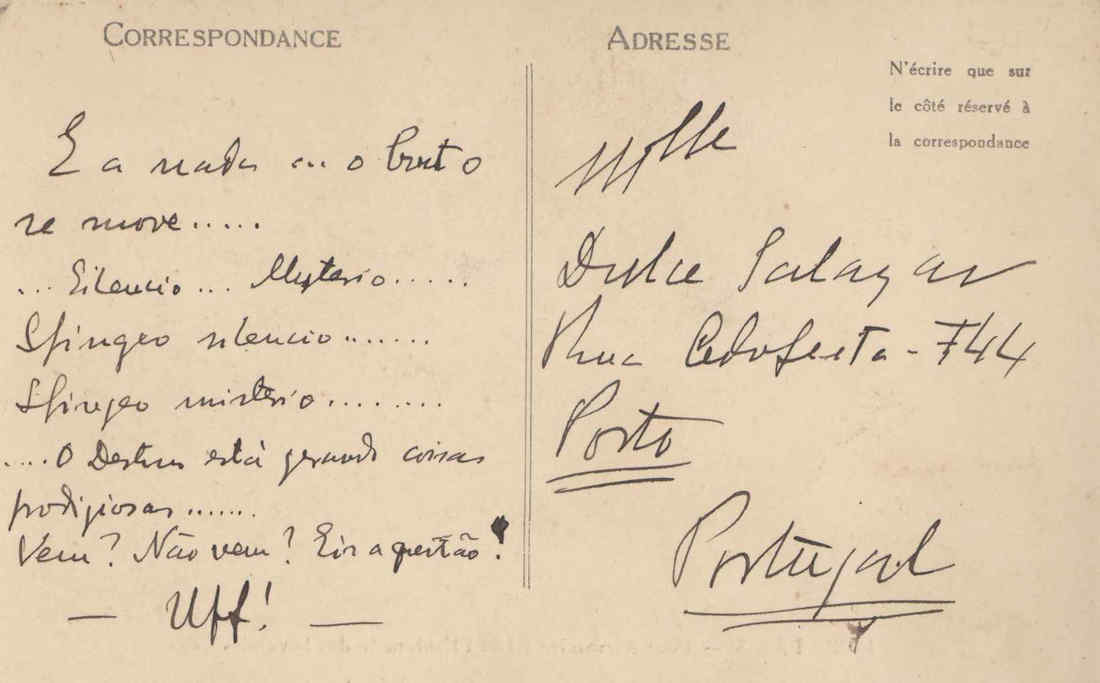 CORRESPONDANCE
E a nada ou o Porto
se move.....
...Silencio... Mysterio.....
Sfingeo silencio.......
Sfingeo misterio........
....O Destino está gerando coisas
prodigiosas......
Vem? Não vem? Eis a questão!
— Uff! —
ADRESSE
N'écrire que sur
le côté réservé à
la correspondance
Mlle
Dulce Salazar
Rua Cedofeita - 744
Porto
Portugal